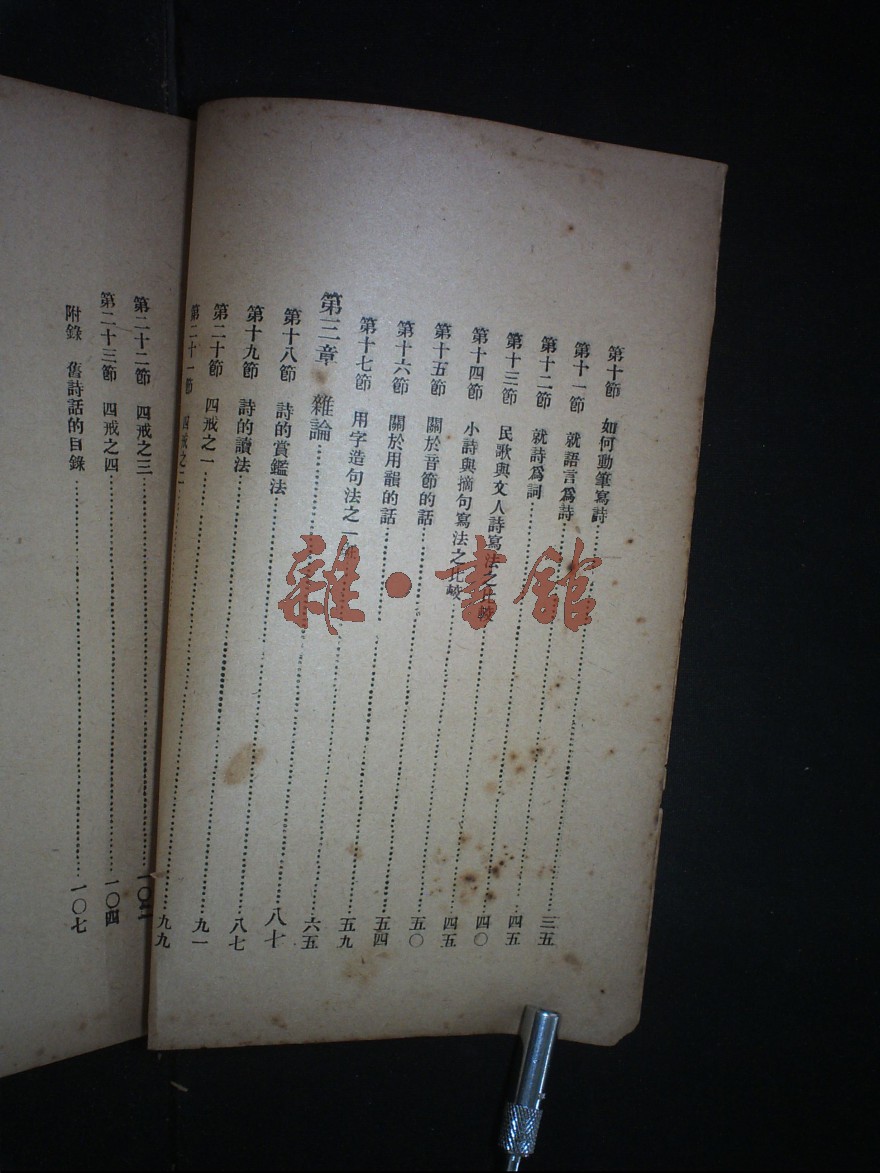 第十節　如何動筆寫詩……三五
第十一節　就語言爲詩……四五
第十二節　就詩爲詞……四〇
第十三節　民歌與文人詩寫法之比較……四五
第十四節　小詩與摘句寫法之比較……五〇
第十五節　關於音節的話……五四
第十六節　關於用韻的話……五九
第十七節　用字造句法之一……六五
第三章　雜論……八十
第十八節　詩的賞鑑法……八七
第十九節　詩的讀法……九一
第二十節　四戒之一……九九
第二十一節　四戒之二……
第二十二節　四戒之三……一〇二
第二十三節　四戒之四……一〇四
附錄　舊詩話的目錄……一〇七
雜·書館